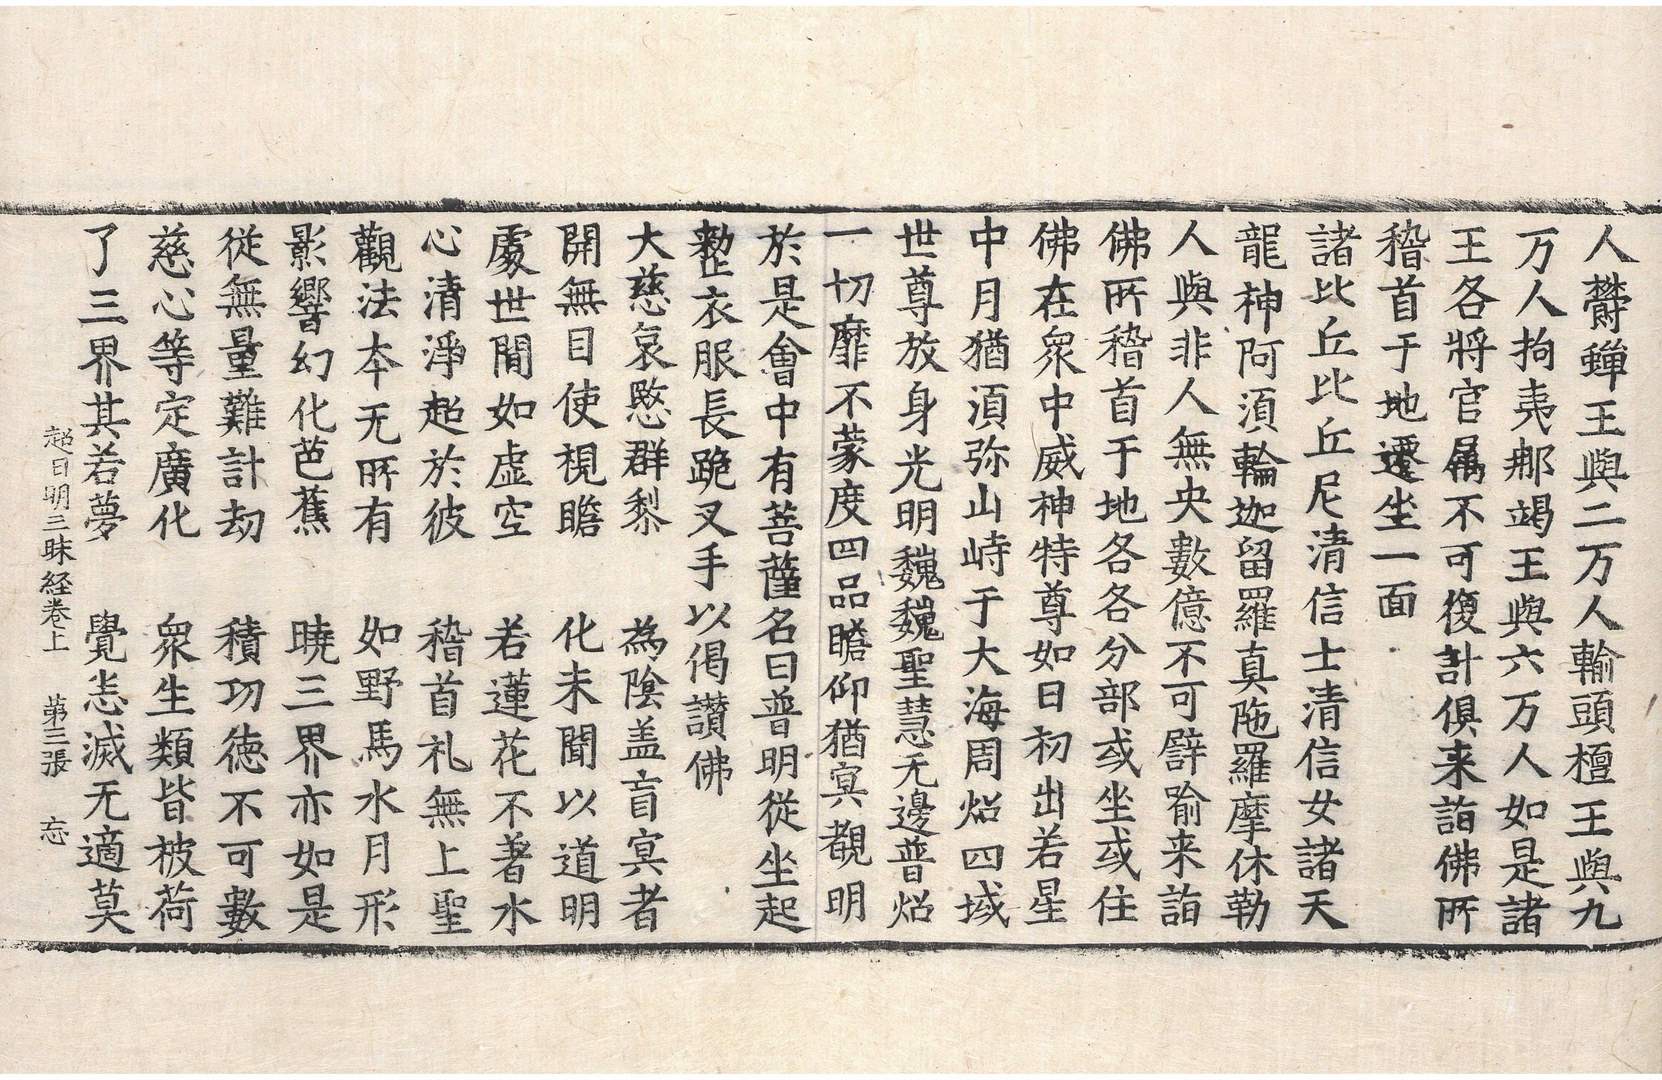 人欝蟬王與二万人輸頭檀王與九
万人拘夷那竭王與六万人如是諸
王各將官属不可復計俱来詣佛所
稽首于地遷坐一面
諸比丘比丘尼清信士清信女諸天
龍神阿須輪迦留羅真陁羅摩休勒
人與非人無央數億不可譬喻来詣
佛所稽首于地各各分部或坐或住
佛在衆中威神特尊如日初出若星
中月猶須弥山峙于大海周炤四域
世尊放身光明巍巍聖慧无邊普炤
一切靡不蒙度四品瞻仰猶冥覩明
於是會中有菩薩名曰普明從坐起
整衣服長跪叉手以偈讃佛
大慈哀愍群黎　為陰盖盲冥者
開無目使視瞻　化未聞以道明
處世間如虚空　若蓮花不著水
心清淨超於彼　稽首礼無上聖
觀法本无所有　如野馬水月形
影響幻化芭蕉　暁三界亦如是
從無量難計劫　積功徳不可數
慈心等定廣化　衆生類皆被荷
了三界其若夢　覺恙滅无適莫
超日明三昧経巻上　第三張　忘